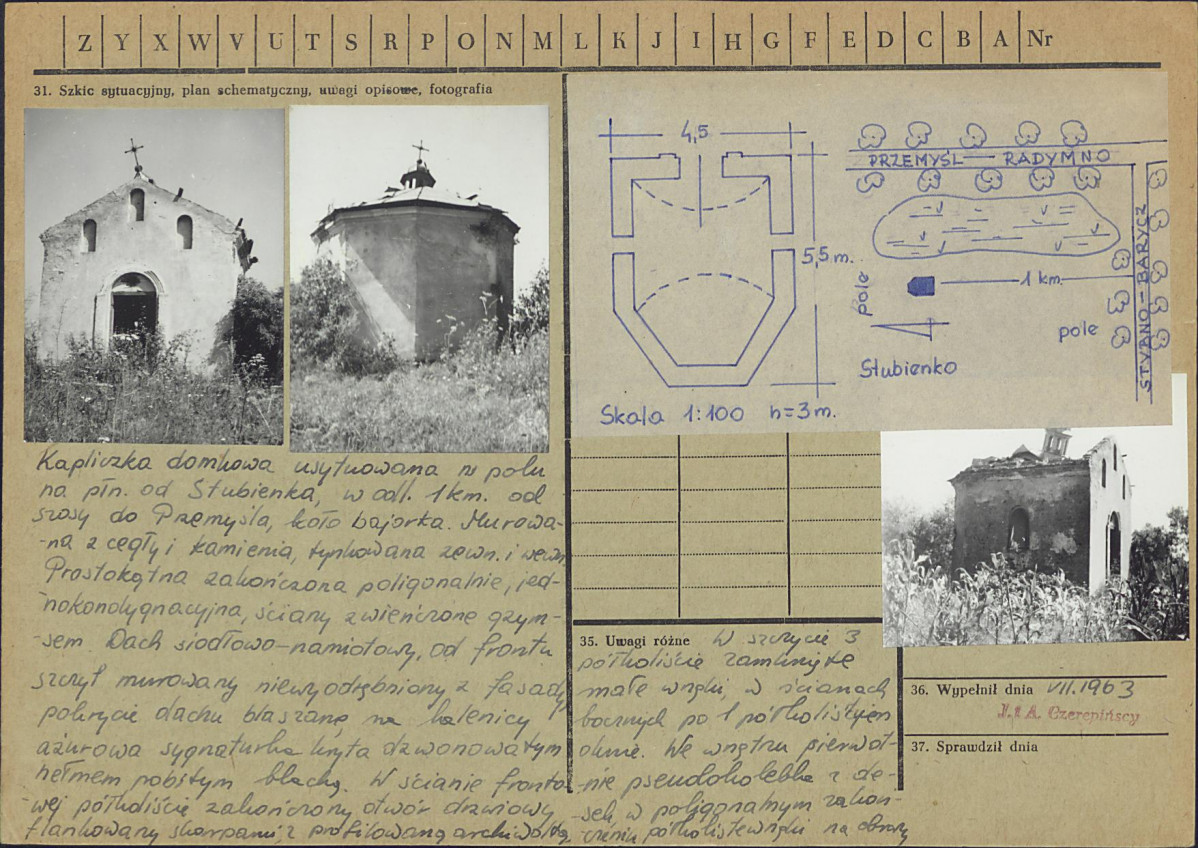 Z Y X W V U T S R P O N M L K J I H G F E D C B A Nr
31. Szkic sytuacyjny, plan schematyczny, uwagi opisowe, fotografia
4,5
5,5 m.
Skala 1:100 h=3 m.
PRZEMYŚL — RADYMNO
STUBNO-BARYCZ
1 km
pole
pole
Stubienko
Kapliczka domkowa usytuowana w polu
na płn. od Stubienka, w odl. 1 km. od
szosy do Przemyśla, koło bajorka. Murowa-
-na z cegły i kamienia, tynkowana zewn. i wewn.
Prostokątna zakończona poligonalnie, jed-
-nokondygnacyjna, ściany zwieńczone gzym-
-sem Dach siodłowo-namiotowy, od frontu
szczyt murowany niewyodrębniony z fasady
pokrycie dachu blaszane, na kalenicy
ażurowa sygnaturka kryta dzwonowatym
hełmem pobitym blachą. W ścianie fronto-
-wej półkoliście zakończony otwór drzwiowy
flankowany skarpami, z profilowaną archiwoltą,
35. Uwagi różne W szczycie 3
półkoliście zamknięte
małe wnęki, w ścianach
bocznych po 1 półkolistym
oknie. We wnętrzu pierwot-
-nie pseudokolebka z de-
-sek, w poligonalnym zakoń-
-czeniu półkoliste wnęki na obrazy
36. Wypełnił dnia VII.1963
J. i A. Czerepińscy
37. Sprawdził dnia